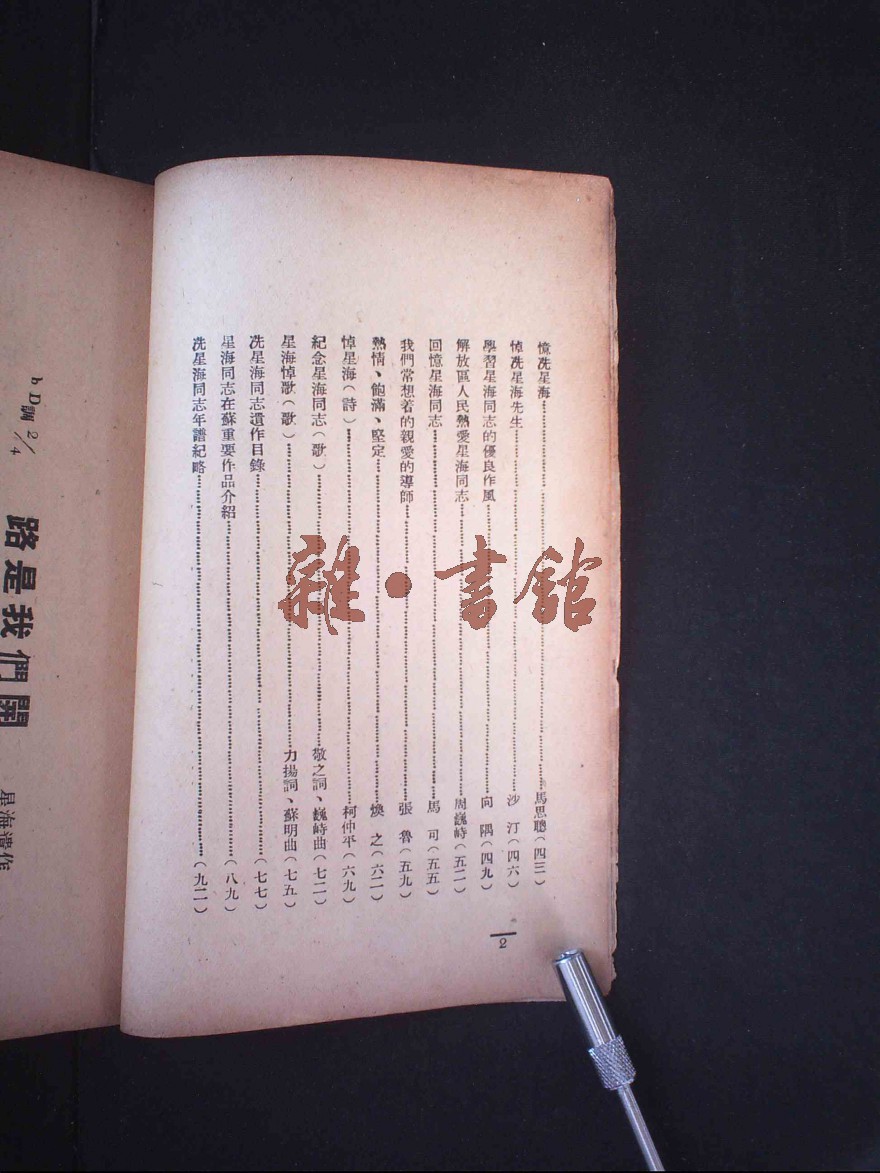 憶冼星海……馬思聰(四三)
悼冼星海先生……沙汀(四六)
學習星海同志的優良作風……向隅(四九)
解放區人民熱愛星海同志……周巍峙(五二)
回憶星海同志……馬可(五五)
我們常想着的親愛的導師……張魯(五九)
熱情、飽滿、堅定……煥之(六二)
悼星海(詩)……柯仲平(六九)
紀念星海同志(歌)……敬之詞、巍峙曲(七二)
星海悼歌(歌)……力揚詞、蘇明曲(七五)
冼星海同志遺作目錄……(七七)
星海同志在蘇重要作品介紹……(八九)
冼星海同志年譜紀略……(九二)
2
雜·書館
bD調 2/4
路是我們開
星海遺作